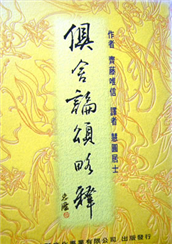 作者 齊藤唯信 譯者 慧圓居士
俱舍論頌略釋
業有限公司 出版發行